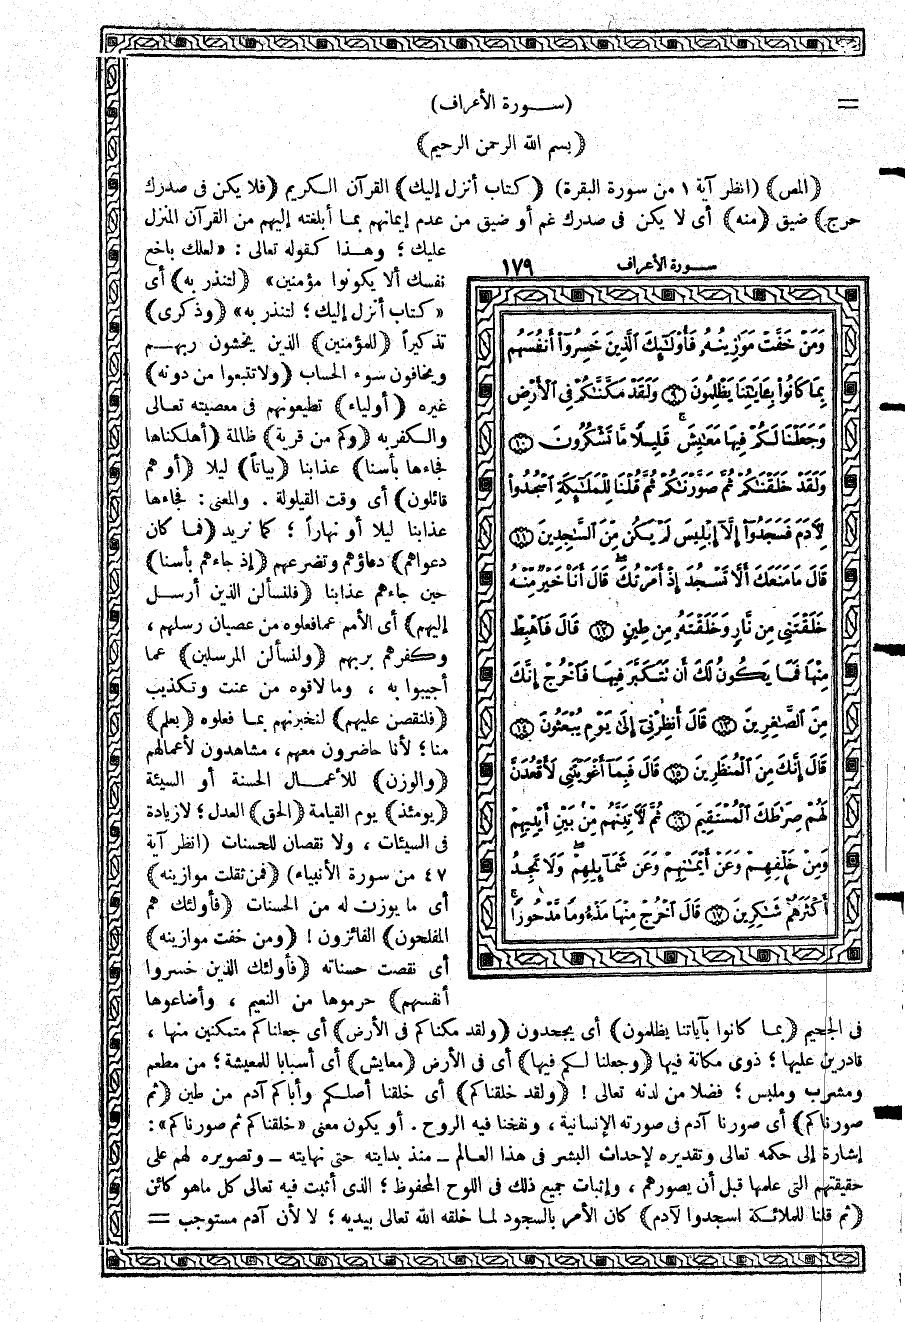 =
(سورة الأعراف)
(بسم الله الرحمن الرحيم)
(المص) (انظر آية ١ من سورة البقرة) (كتاب أنزل إليك) القرآن الكريم (فلا يكن فى صدرك
حرج) ضيق (منه) أى لا يكن فى صدرك غم أو ضيق من عدم إيمانهم بما أبلغته إليهم من القرآن المنزل
عليك ؛ وهذا كقوله تعالى : «لعلك باخع
نفسك ألا يكونوا مؤمنين» (لتنذر به) أى
«كتاب أنزل إليك ؛ لتنذر به» (وذكرى)
تذكيراً (للمؤمنين) الذين يخشون ربهم
ويخافون سوء الحساب (ولا تتبعوا من دونه)
غيره (أولياء) تطيعونهم فى معصيته تعالى
والكفر به (وكم من قرية) ظالمة (أهلكناها
فجاءها بأسنا) عذابنا (بياتاً) ليلا (أو هم
قائلون) أى وقت القيلولة . والمعنى : فجاءها
عذابنا ليلا أو نهاراً ؛ كما نريد (فما كان
دعواهم) دعاؤهم وتضرعهم (إذ جاءهم بأسنا)
حين جاءهم عذابنا (فلنسألن الذين أرسل
إليهم) أى الأمم عما فعلوه من عصيان رسلهم ،
وكفرهم بربهم (ولنسألن المرسلين) عما
أجيبوا به ، وما لاقوه من عنت وتكذيب
(فلنقصن عليهم) لنخبرنهم بما فعلوه (بعلم)
منا ؛ لأنا حاضرون معهم ، مشاهدون لأعمالهم
(والوزن) للأعمال الحسنة أو السيئة
(يومئذ) يوم القيامة (الحق) العدل ؛ لا زيادة
فى السيئات ، ولا نقصان للحسنات (انظر آية
٤٧ من سورة الأنبياء) (فمن ثقلت موازينه)
أى ما يوزن له من الحسنات (فأولئك هم
المفلحون) الفائزون ! (ومن خفت موازينه)
أى نقصت حسناته (فأولئك الذين خسروا
أنفسهم) حرموها من النعيم ، وأضاعوها
سورة الأعراف ١٧٩
وَمَنْ خَفَّتْ مَوَٰزِينُهُۥ فَأُوْلَـٰٓئِكَ ٱلَّذِينَ خَسِرُوٓاْ أَنفُسَهُم
بِمَا كَانُواْ بِـَٔايَـٰتِنَا يَظْلِمُونَ ۝٩ وَلَقَدْ مَكَّنَّـٰكُمْ فِى ٱلْأَرْضِ
وَجَعَلْنَا لَكُمْ فِيهَا مَعَـٰيِشَ ۗ قَلِيلًا مَّا تَشْكُرُونَ ۝١٠
وَلَقَدْ خَلَقْنَـٰكُمْ ثُمَّ صَوَّرْنَـٰكُمْ ثُمَّ قُلْنَا لِلْمَلَـٰٓئِكَةِ ٱسْجُدُواْ
لِأَدَمَ فَسَجَدُوٓاْ إِلَّآ إِبْلِيسَ لَمْ يَكُن مِّنَ ٱلسَّـٰجِدِينَ ۝١١
قَالَ مَا مَنَعَكَ أَلَّا تَسْجُدَ إِذْ أَمَرْتُكَ ۖ قَالَ أَنَا۠ خَيْرٌ مِّنْهُ
خَلَقْتَنِى مِن نَّارٍ وَخَلَقْتَهُۥ مِن طِينٍ ۝١٢ قَالَ فَٱهْبِطْ
مِنْهَا فَمَا يَكُونُ لَكَ أَن تَتَكَبَّرَ فِيهَا فَٱخْرُجْ إِنَّكَ
مِنَ ٱلصَّـٰغِرِينَ ۝١٣ قَالَ أَنظِرْنِىٓ إِلَىٰ يَوْمِ يُبْعَثُونَ ۝١٤
قَالَ إِنَّكَ مِنَ ٱلْمُنظَرِينَ ۝١٥ قَالَ فَبِمَآ أَغْوَيْتَنِى لَأَقْعُدَنَّ
لَهُمْ صِرَٰطَكَ ٱلْمُسْتَقِيمَ ۝١٦ ثُمَّ لَأَتِيَنَّهُم مِّنۢ بَيْنِ أَيْدِيهِمْ
وَمِنْ خَلْفِهِمْ وَعَنْ أَيْمَـٰنِهِمْ وَعَن شَمَآئِلِهِمْ ۖ وَلَا تَجِدُ
أَكْثَرَهُمْ شَـٰكِرِينَ ۝١٧ قَالَ ٱخْرُجْ مِنْهَا مَذْءُومًا مَّدْحُورًا ۖ
فى الجحيم (بما كانوا بآياتنا يظلمون) أى يجحدون (ولقد مكناكم فى الأرض) أى جعلناكم متمكنين منها ،
قادرين عليها ؛ ذوى مكانة فيها (وجعلنا لكم فيها) أى فى الأرض (معايش) أى أسبابا للمعيشة ؛ من مطعم
ومشرب وملبس ؛ فضلا من لدنه تعالى ! (ولقد خلقناكم) أى خلقنا أصلكم وأباكم آدم من طين (ثم
صورناكم) أى صورنا آدم فى صورته الإنسانية ، ونفخنا فيه الروح . أو يكون معنى «خلقناكم ثم صورناكم» :
إشارة إلى حكمه تعالى وتقديره لإحداث البشر فى هذا العالم ــ منذ بدايته حتى نهايته ــ وتصويره لهم على
حقيقتهم التى علمها قبل أن يصورهم ، وإثبات جميع ذلك فى اللوح المحفوظ ؛ الذى أثبت فيه تعالى كل ما هو كائن
(ثم قلنا للملائكة اسجدوا لآدم) كان الأمر بالسجود لما خلقه الله تعالى بيديه ؛ لا لأن آدم مستوجب =